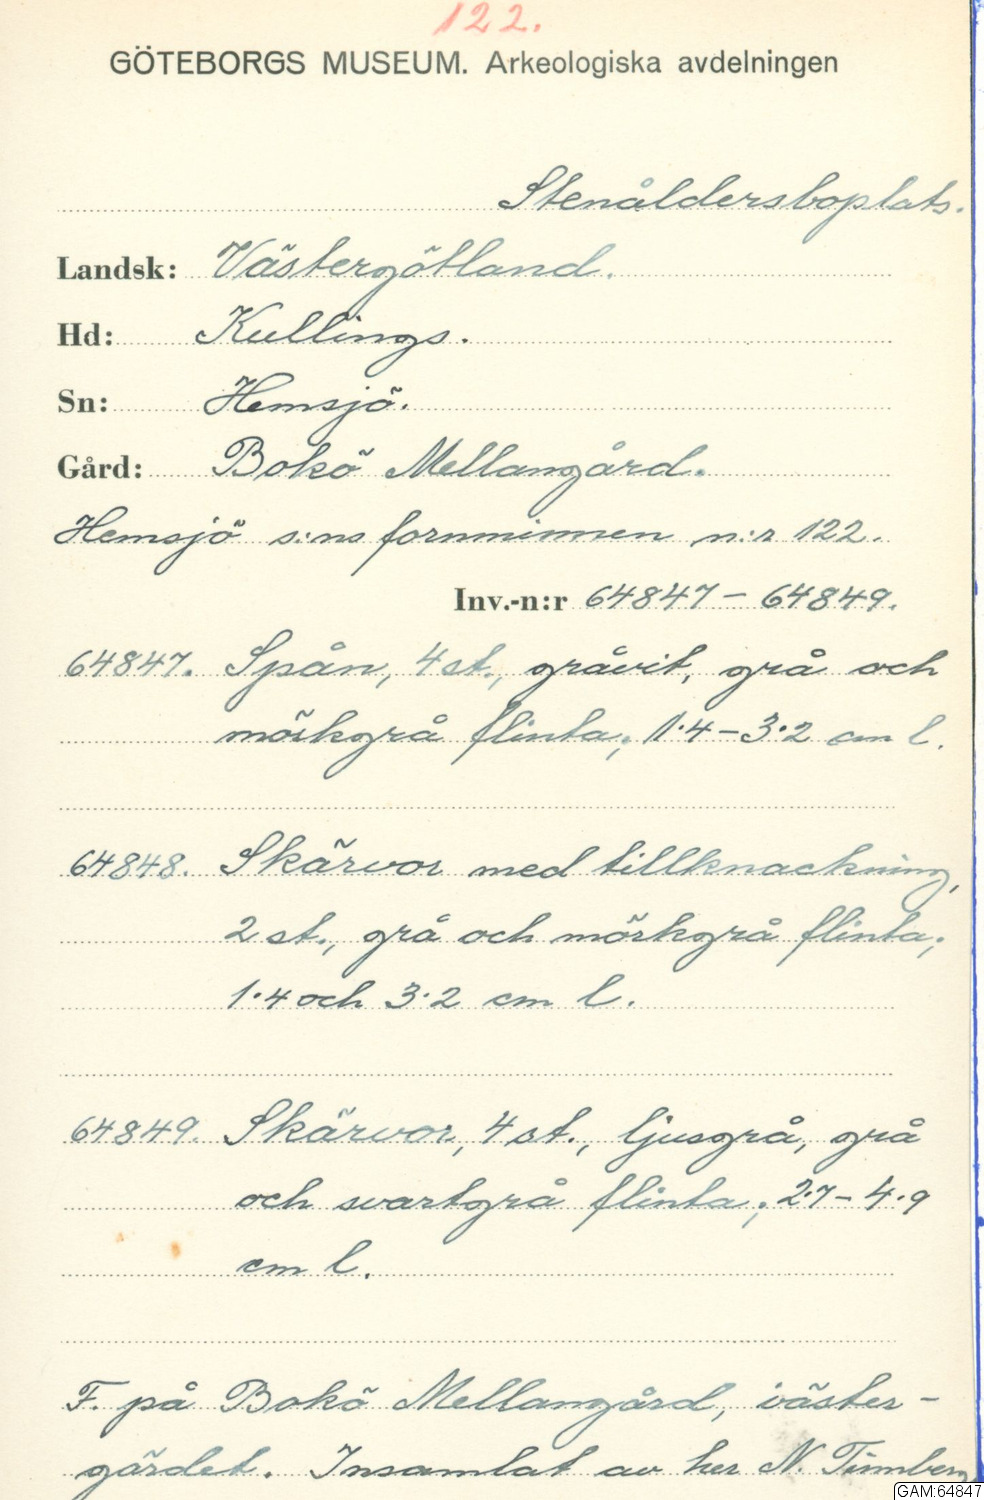 122.
GÖTEBORGS MUSEUM. Arkeologiska avdelningen
Stenåldersboplats.
Landsk: Västergötland.
Hd: Kullings.
Sn: Hemsjö.
Gård: Bokö Mellangård.
Hemsjö s:ns fornminnen n:r 122.
Inv.-n:r 64847 – 64849.
64847. Spån, 4 st., gråvit, grå och
mörkgrå flinta; 1·4 – 3·2 cm l.
64848. Skärvor med tillknackning,
2 st., grå och mörkgrå flinta;
1·4 och 3·2 cm l.
64849. Skärvor, 4 st., ljusgrå, grå
och svartgrå flinta; 2·7 – 4·9
cm l.
F. på Bokö Mellangård, i väster-
gärdet. Insamlat av her N.
GAM:64847